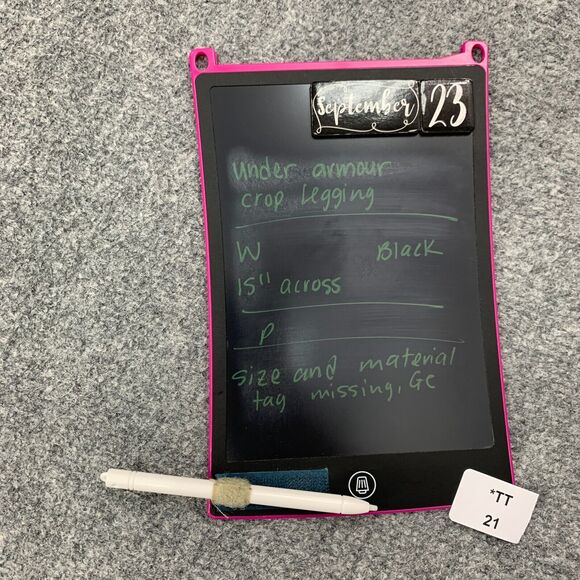 September 23
Under armour
crop legging
W Black
15" across
P
Size and material
tag missing, GC
*TT
21